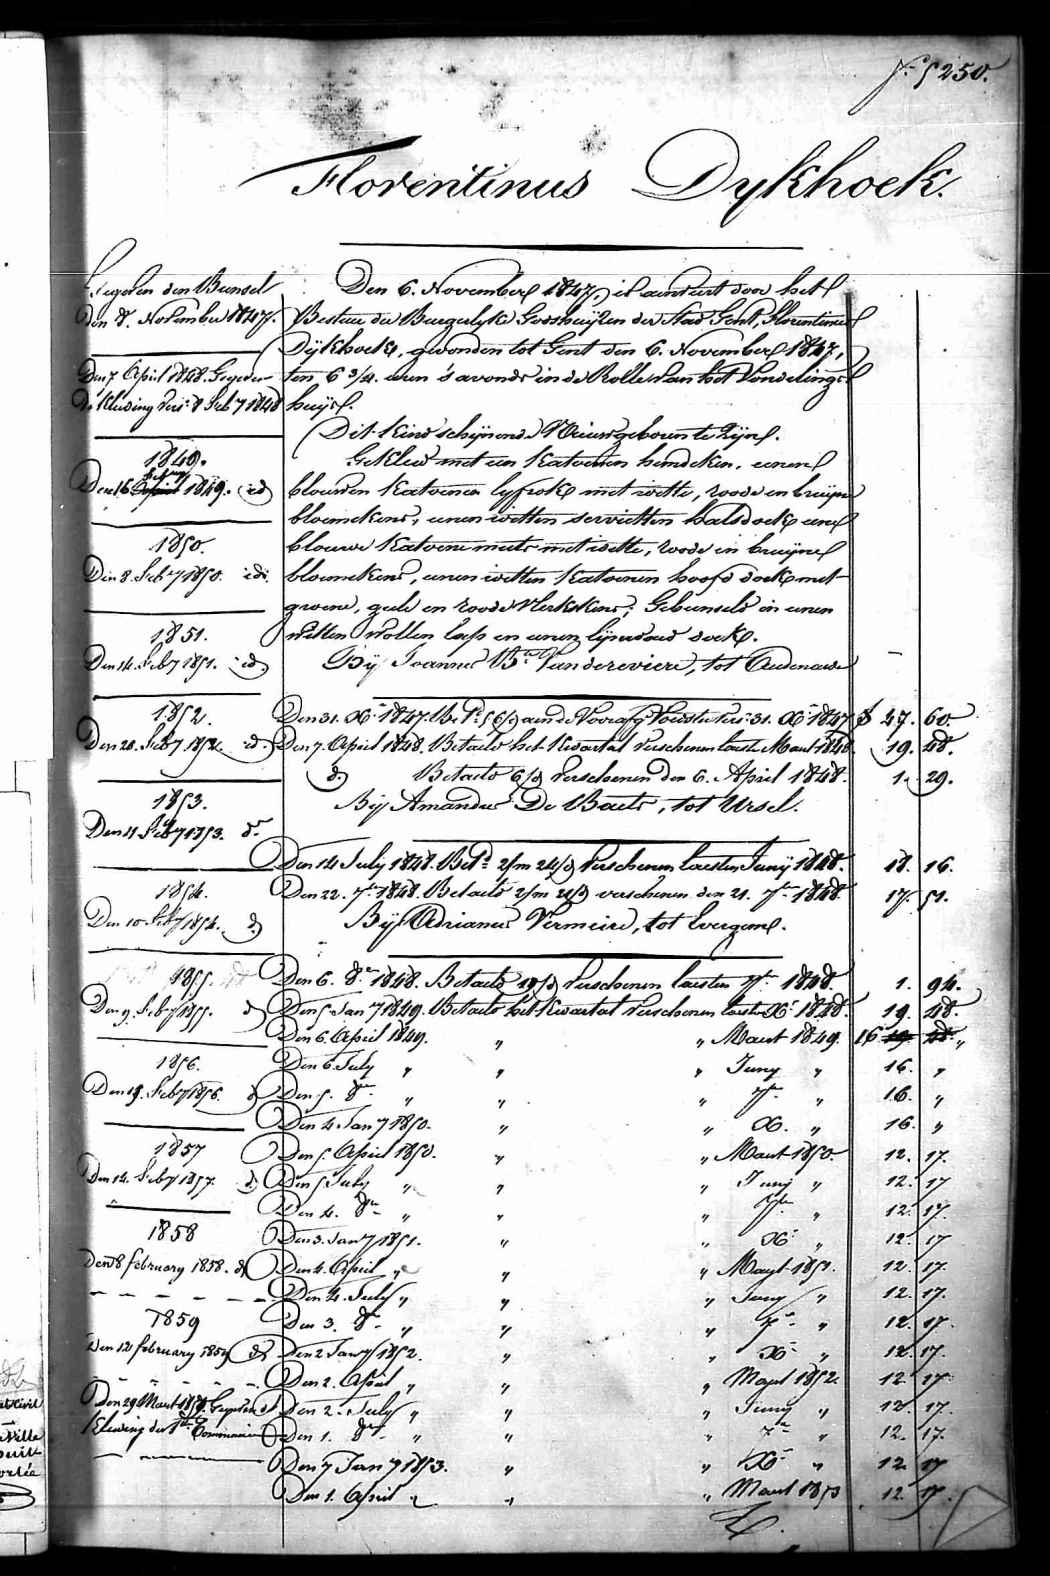 250.
Florentinus Dykhoek.
Gegeven den Bunsel
den 8. November 1847.
Den 7 April 1848. Gegeven
de Kleeding 7 1848
1849.
Den 16 1849. id
1850.
Den 8. Feb 7 1850. id.
1851.
Den 14. Feb 7 1851. id
1852.
Den 20. Feb 7 1852. id.
1853.
Den 11 Feb 7 1853. d°
1854.
Den 10 Feb 7 1854. d°
1855.
Den 9. Feb 7 1855. d°
1856.
Den 19. Feb 7 1856. d°
1857
Den 14. Feb 7 1857. d°
1858
Den 8 february 1858. d°
1859
Den 12 february 1859 d°
Den 29 Maart 1859. Gegeven de
Kleeding der 1ste Communie
Den 6. November 1847, is aenveirt door het
Bestuer der Burgerlyke Godshuijzen der Stad Gent, Florentinus
Dijkhoek, gevonden tot Gent den 6. November 1847,
ten 6 3/4 uren 's avonds in de Rolle van het Vondelings
huijs.
Dit kind schijnende Nieuwgeboren te Zijn.
Gekleed met een Katoenen hemdeken, eenen
blauwen Katoenen lyfrok met witte, roode en bruijne
bloemekens, eenen witten servietten halsdoek eene
blauwe Katoene muts met witte, roode en bruijne
bloemekens, eenen witten Katoenen hoofd doek met
groene, geele en roode vlekskens; Gebunseld in eenen
witten wollen lap en eenen lijnwaed doek.
Bij Joannes Bte Vandereviere, tot Audenaerde
Den 31. Xr 1847. aen de Voorzorg 31. Xr 1847 47. 60.
Den 7. April 1848. Betaeld het Kwartael verschenen laetsten Maert 1848. 19. 48.
d° Betaeld 6/d verschenen den 6. April 1848. 1. 29.
Bij Amandus De Baets, tot Ursel.
Den 14 July 1848. Betd 2/m 24/d verschenen laetsten Junij 1848. 18. 16.
Den 22. 7r 1848. Betaeld 2/m 21/d verschenen den 21. 7r 1848 17. 51.
Bij Adrianus Vermeire, tot Evergem.
Den 6. 8r 1848. Betaeld 9/d verschenen laetsten 7r 1848. 1. 94.
Den 5 Jan 7 1849. Betaeld het Kwartael verschenen laetsten Xr 1848. 19. 48.
Den 6. April 1849. " " Maert 1849. 16 19. 48. "
Den 6. July " " " Juny " 16. "
Den 5. 8r " " " 7r " 16. "
Den 4. Jan 7 1850. " " X. " 16. "
Den 5. April 1850. " " Maert 1850. 12. 17.
Den 5 July " " " Junij " 12. 17
Den 4. 8r " " " 7r " 12. 17.
Den 3. Jan 7 1851. " " Xr " 12. 17
Den 4. April " " " Maert 1851. 12. 17.
Den 4. July " " " Juny " 12. 17.
Den 3. 8r " " " 7r " 12. 17.
Den 2 Jan 7 1852. " " Xr " 12. 17.
Den 2. April " " " Maert 1852. 12. 17.
Den 2. July " " " Juny " 12. 17.
Den 1. 8r " " " 7r " 12. 17.
Den 7 Jan 7 1853. " " Xr " 12. 17
Den 1. April " " " Maert 1853 12. 17.